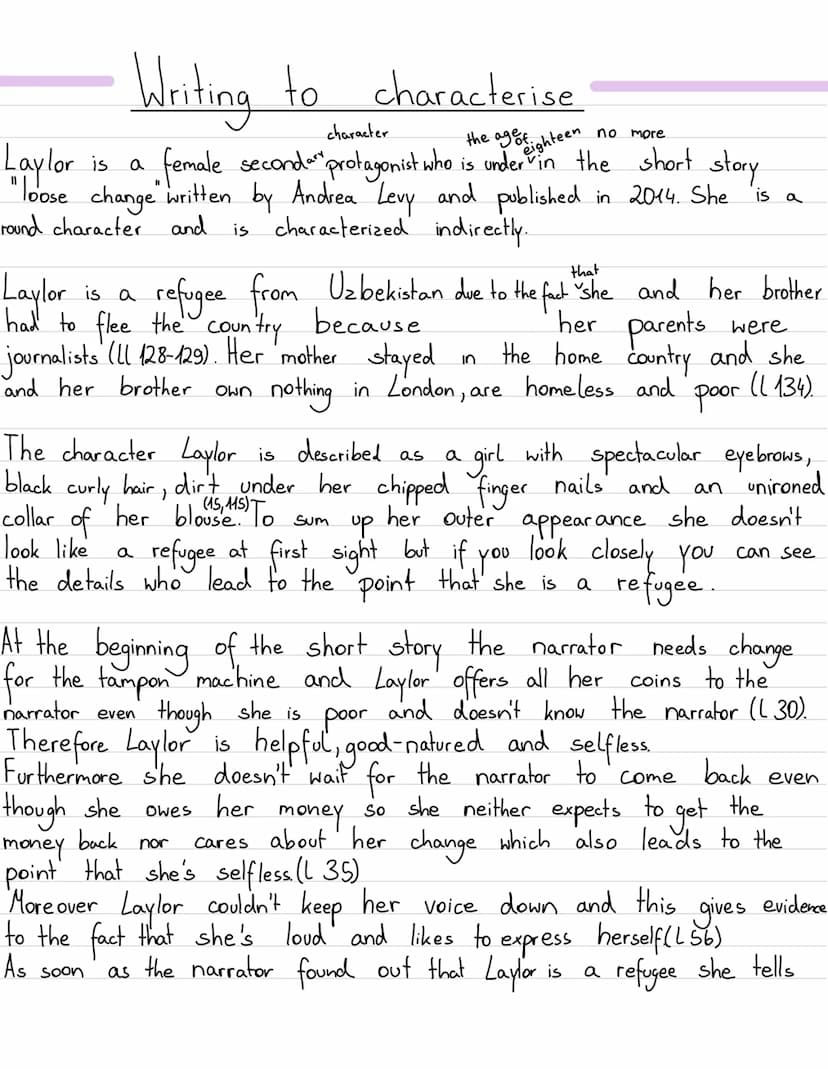 Writing to characterise
character the age of eighteen no more
Laylor is a female secondary protagonist who is under in the short story
"loose change" written by Andrea Levy and published in 2014. She is a
round character and is characterized indirectly.
that
Laylor is a refugee from Uzbekistan due to the fact she and her brother
had to flee the country because her parents were
journalists (ll 128-129). Her mother stayed in the home country and she
and her brother own nothing in London, are homeless and poor (l 134).
The character Laylor is described as a girl with spectacular eyebrows,
black curly hair, dirt under her chipped finger nails and an unironed
(15, 115)
collar of her blouse. To sum up her outer appearance she doesn't
look like a refugee at first sight but if you look closely you can see
the details who lead to the point that she is a refugee.
At the beginning of the short story the narrator needs change
for the tampon machine and Laylor offers all her coins to the
narrator even though she is poor and doesn't know the narrator (L 30).
Therefore Laylor is helpful, good-natured and selfless.
Furthermore she doesn't wait for the narrator to come back even
though she owes her money so she neither expects to get the
money back nor cares about her change which also leads to the
point that she's selfless. (L 35)
Moreover Laylor couldn't keep her voice down and this gives evidence
to the fact that she's loud and likes to express herself (L 56)
As soon as the narrator found out that Laylor is a refugee she tells